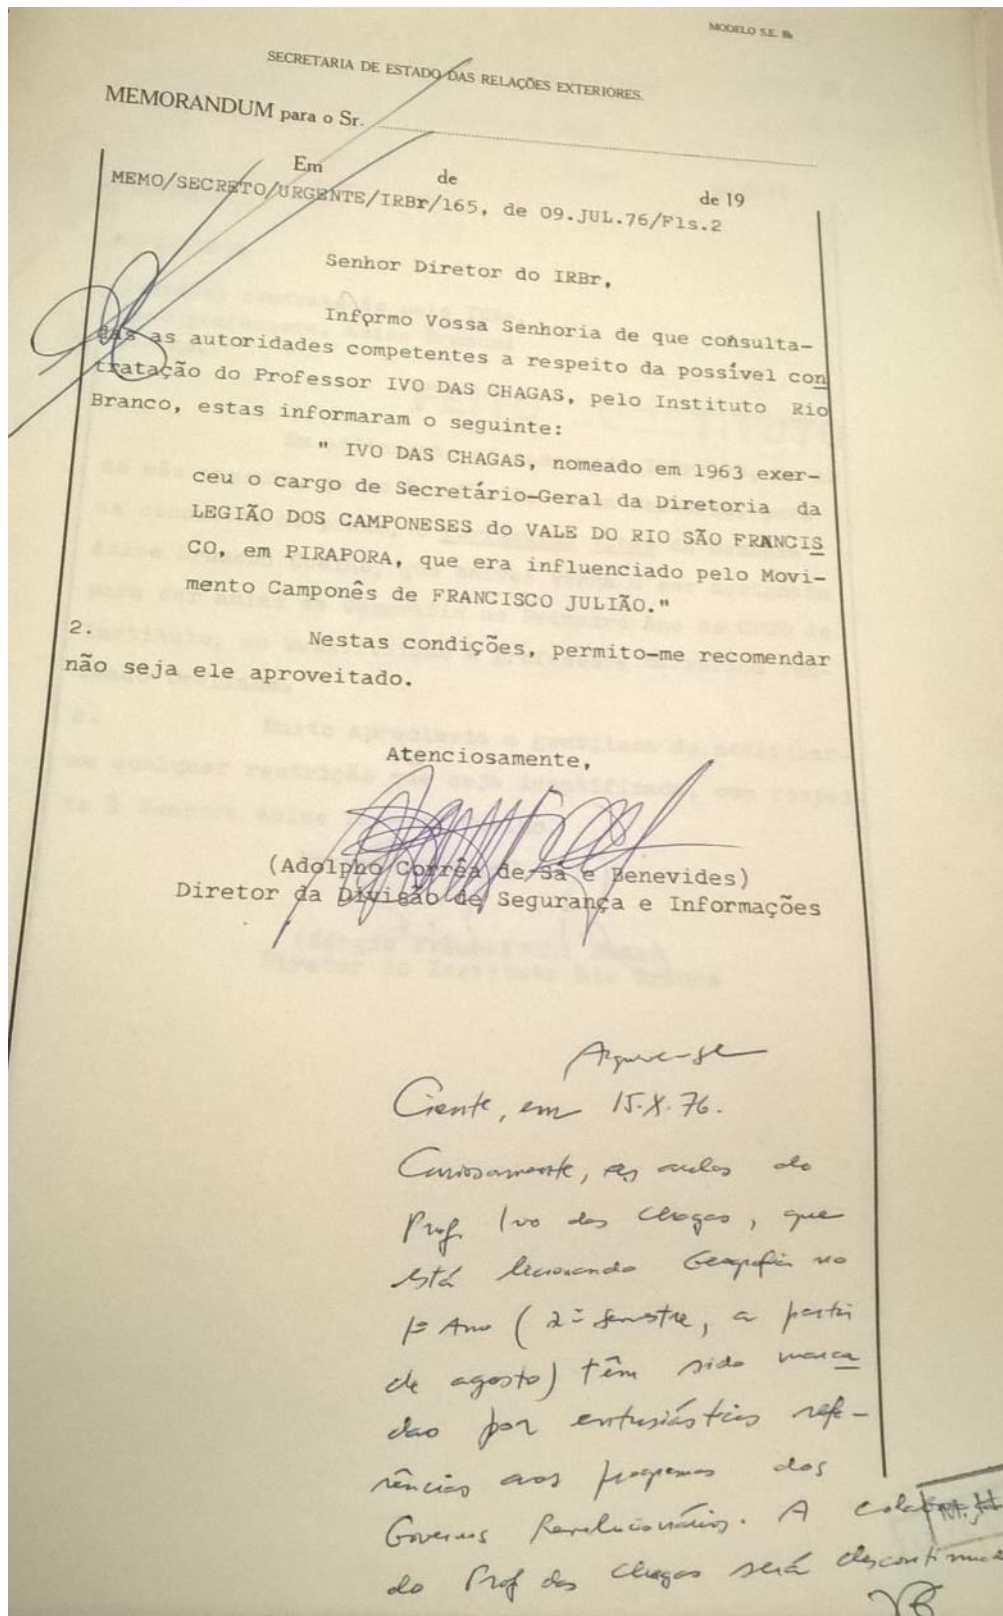 MODELO S.E. 8b
SECRETARIA DE ESTADO DAS RELAÇÕES EXTERIORES.
MEMORANDUM para o Sr.
Em de de 19
MEMO/SECRETO/URGENTE/IRBr/165, de 09.JUL.76/Fls.2
Senhor Diretor do IRBr,
Informo Vossa Senhoria de que consulta-
das as autoridades competentes a respeito da possível con
tratação do Professor IVO DAS CHAGAS, pelo Instituto Rio
Branco, estas informaram o seguinte:
" IVO DAS CHAGAS, nomeado em 1963 exer-
ceu o cargo de Secretário-Geral da Diretoria da
LEGIÃO DOS CAMPONESES do VALE DO RIO SÃO FRANCIS
CO, em PIRAPORA, que era influenciado pelo Movi-
mento Camponês de FRANCISCO JULIÃO."
2. Nestas condições, permito-me recomendar
não seja ele aproveitado.
Atenciosamente,
(Adolpho Corrêa de Sá e Benevides)
Diretor da Divisão de Segurança e Informações
Arquive-se
Ciente, em 15.X.76.
Curiosamente, as aulas do
Prof. Ivo das Chagas, que
está lecionando Geografia no
1º Ano (2º semestre, a partir
de agosto) têm sido marca
das por entusiásticas refe-
rências aos programas dos
Governos Revolucionários. A
do Prof das Chagas será